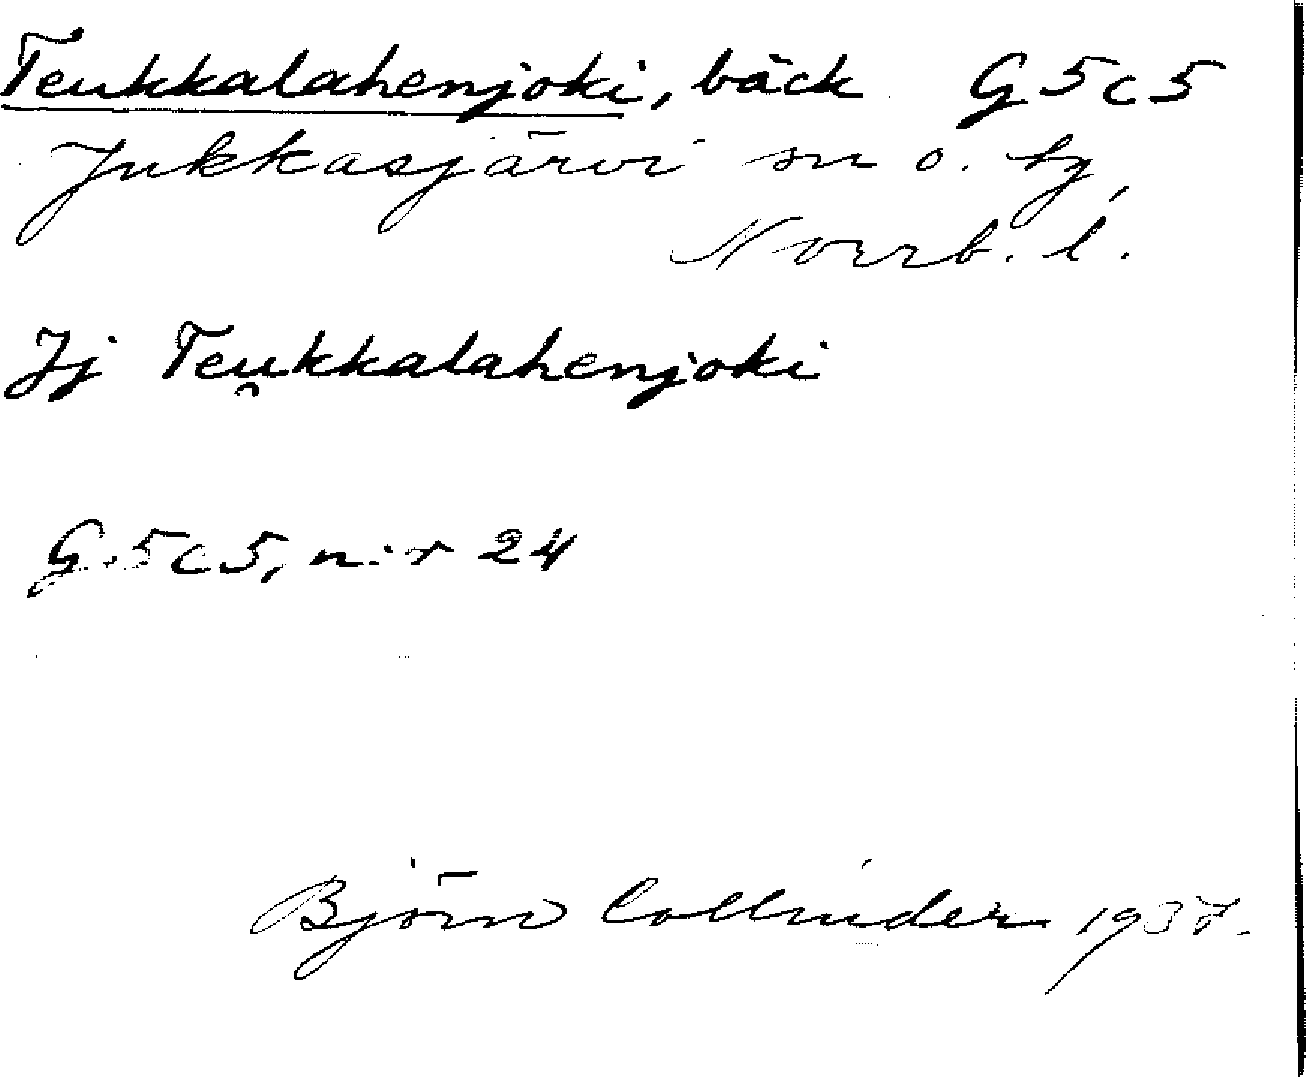 Teukkalahenjoki, bäck G 5 c 5
Jukkasjärvi sn o. tg,
Norrb. l.
Jj Teu̯kkalahenjoki
G. 5 c 5, n:r 24
Björn Collinder 1937.